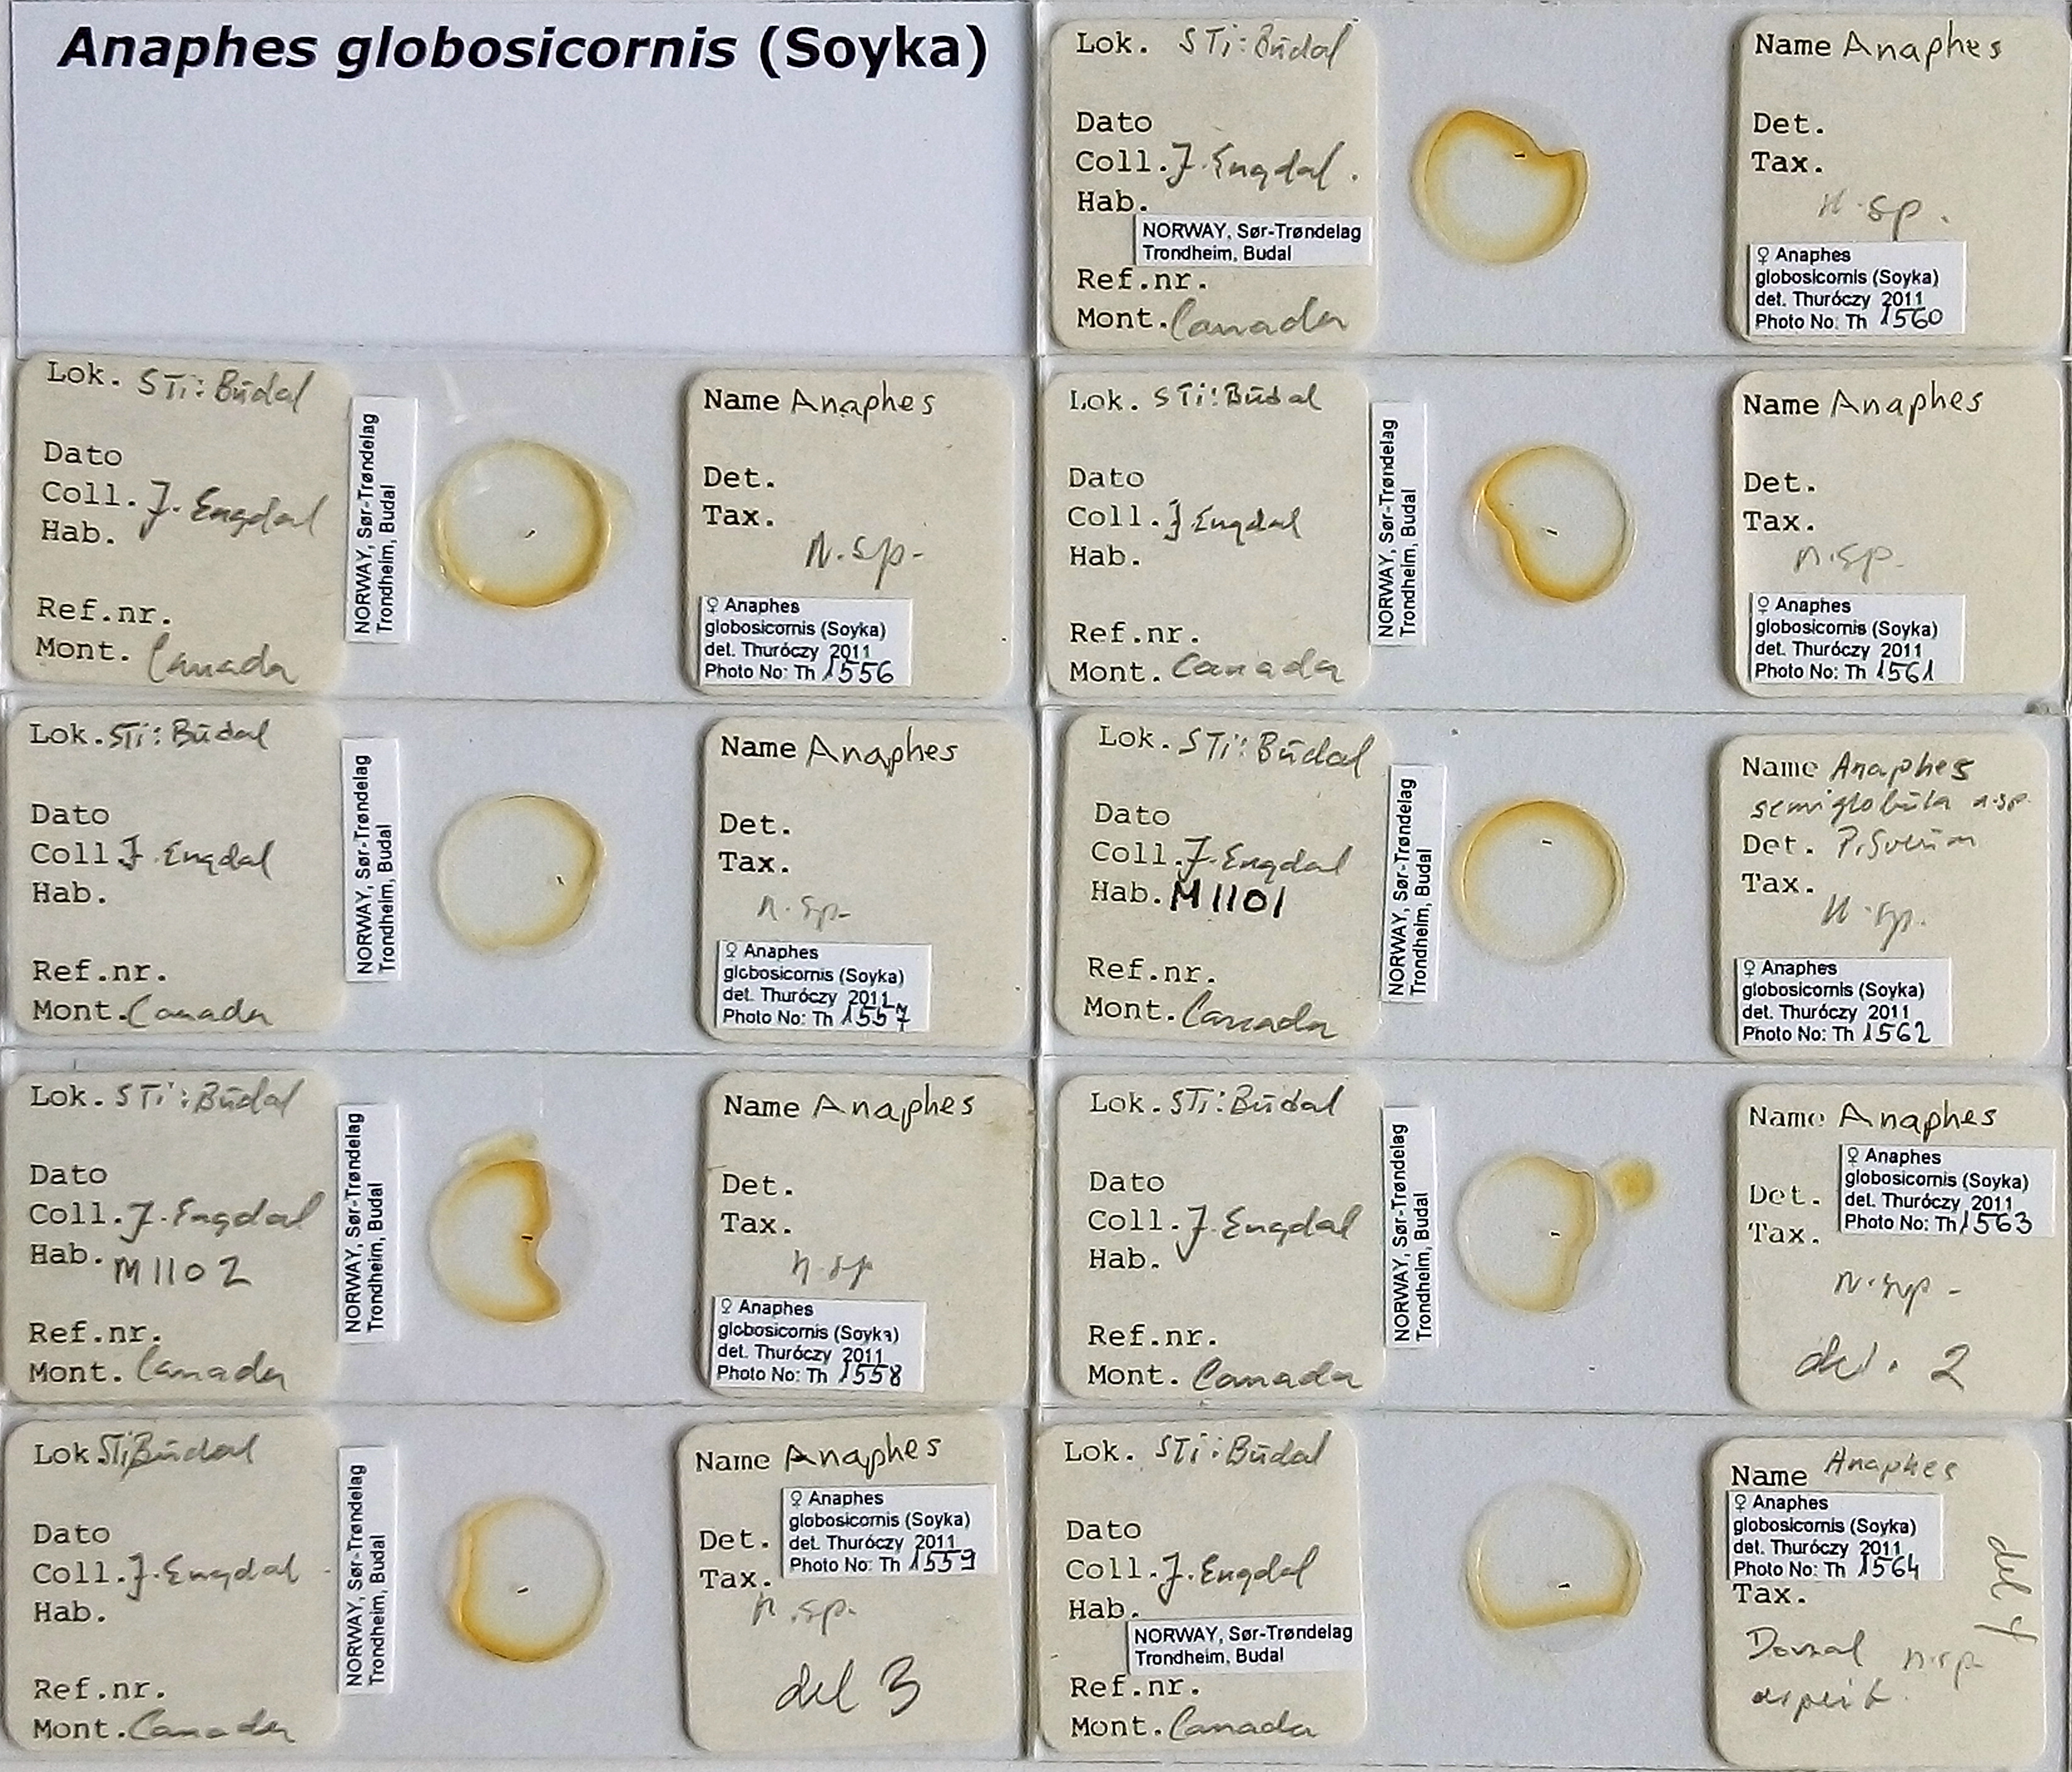 Anaphes globosicornis (Soyka)
Lok. STi: Budal
Dato
Coll. J. Engdal.
Hab.
NORWAY, Sør-Trøndelag
Trondheim, Budal
Ref.nr.
Mont. Canada
Name Anaphes
Det.
Tax.
n.sp.
♀ Anaphes
globosicornis (Soyka)
det. Thuróczy 2011
Photo No: Th 1560
Lok. STi: Budal
Dato
Coll. J. Engdal
Hab.
Ref.nr.
Mont. Canada
NORWAY, Sør-Trøndelag
Trondheim, Budal
Name Anaphes
Det.
Tax.
N.sp-
♀ Anaphes
globosicornis (Soyka)
det. Thuróczy 2011
Photo No: Th 1556
Lok. STi: Budal
Dato
Coll. J Engdal
Hab.
Ref.nr.
Mont. Canada
NORWAY, Sør-Trøndelag
Trondheim, Budal
Name Anaphes
Det.
Tax.
n.sp.
♀ Anaphes
globosicornis (Soyka)
det. Thuróczy 2011
Photo No: Th 1561
Lok. STi: Budal
Dato
Coll J. Engdal
Hab.
Ref.nr.
Mont. Canada
NORWAY, Sør-Trøndelag
Trondheim, Budal
Name Anaphes
Det.
Tax.
n.sp-
♀ Anaphes
globosicornis (Soyka)
det. Thuróczy 2011
Photo No: Th 1557
Lok. STi: Budal
Dato
Coll. J. Engdal
Hab. M1101
Ref.nr.
Mont. Canada
NORWAY, Sør-Trøndelag
Trondheim, Budal
Name Anaphes
semiglobula n.sp.
Det.
Tax.
n.sp.
♀ Anaphes
globosicornis (Soyka)
det. Thuróczy 2011
Photo No: Th 1562
Lok. STi: Budal
Dato
Coll. J. Engdal
Hab. M1102
Ref.nr.
Mont. Canada
NORWAY, Sør-Trøndelag
Trondheim, Budal
Name Anaphes
Det.
Tax.
n.sp
♀ Anaphes
globosicornis (Soyka)
det. Thuróczy 2011
Photo No: Th 1558
Lok. STi: Budal
Dato
Coll. J. Engdal
Hab.
Ref.nr.
Mont. Canada
NORWAY, Sør-Trøndelag
Trondheim, Budal
Name Anaphes
♀ Anaphes
globosicornis (Soyka)
det. Thuróczy 2011
Photo No: Th 1563
Det.
Tax.
n.sp-
del. 2
Lok STi Budal
Dato
Coll. J. Engdal
Hab.
Ref.nr.
Mont. Canada
NORWAY, Sør-Trøndelag
Trondheim, Budal
Name Anaphes
♀ Anaphes
globosicornis (Soyka)
det. Thuróczy 2011
Photo No: Th 1559
Det.
Tax.
n.sp.
del 3
Lok. STi: Budal
Dato
Coll. J. Engdal
Hab.
NORWAY, Sør-Trøndelag
Trondheim, Budal
Ref.nr.
Mont. Canada
Name Anaphes
♀ Anaphes
globosicornis (Soyka)
det. Thuróczy 2011
Photo No: Th 1564
Tax.
Dorsal n.sp-
del